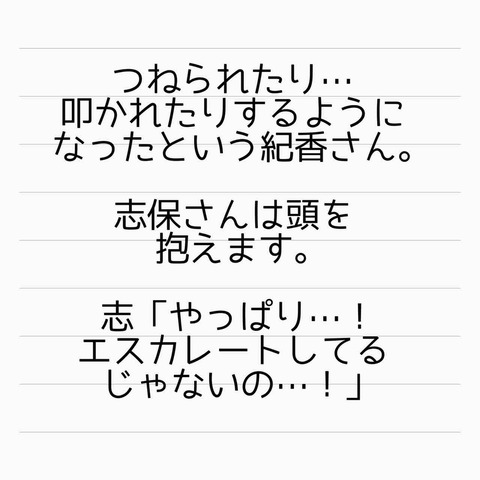 つねられたり…
叩かれたりするように
なったという紀香さん。
志保さんは頭を
抱えます。
志「やっぱり…！
エスカレートしてる
じゃないの…！」